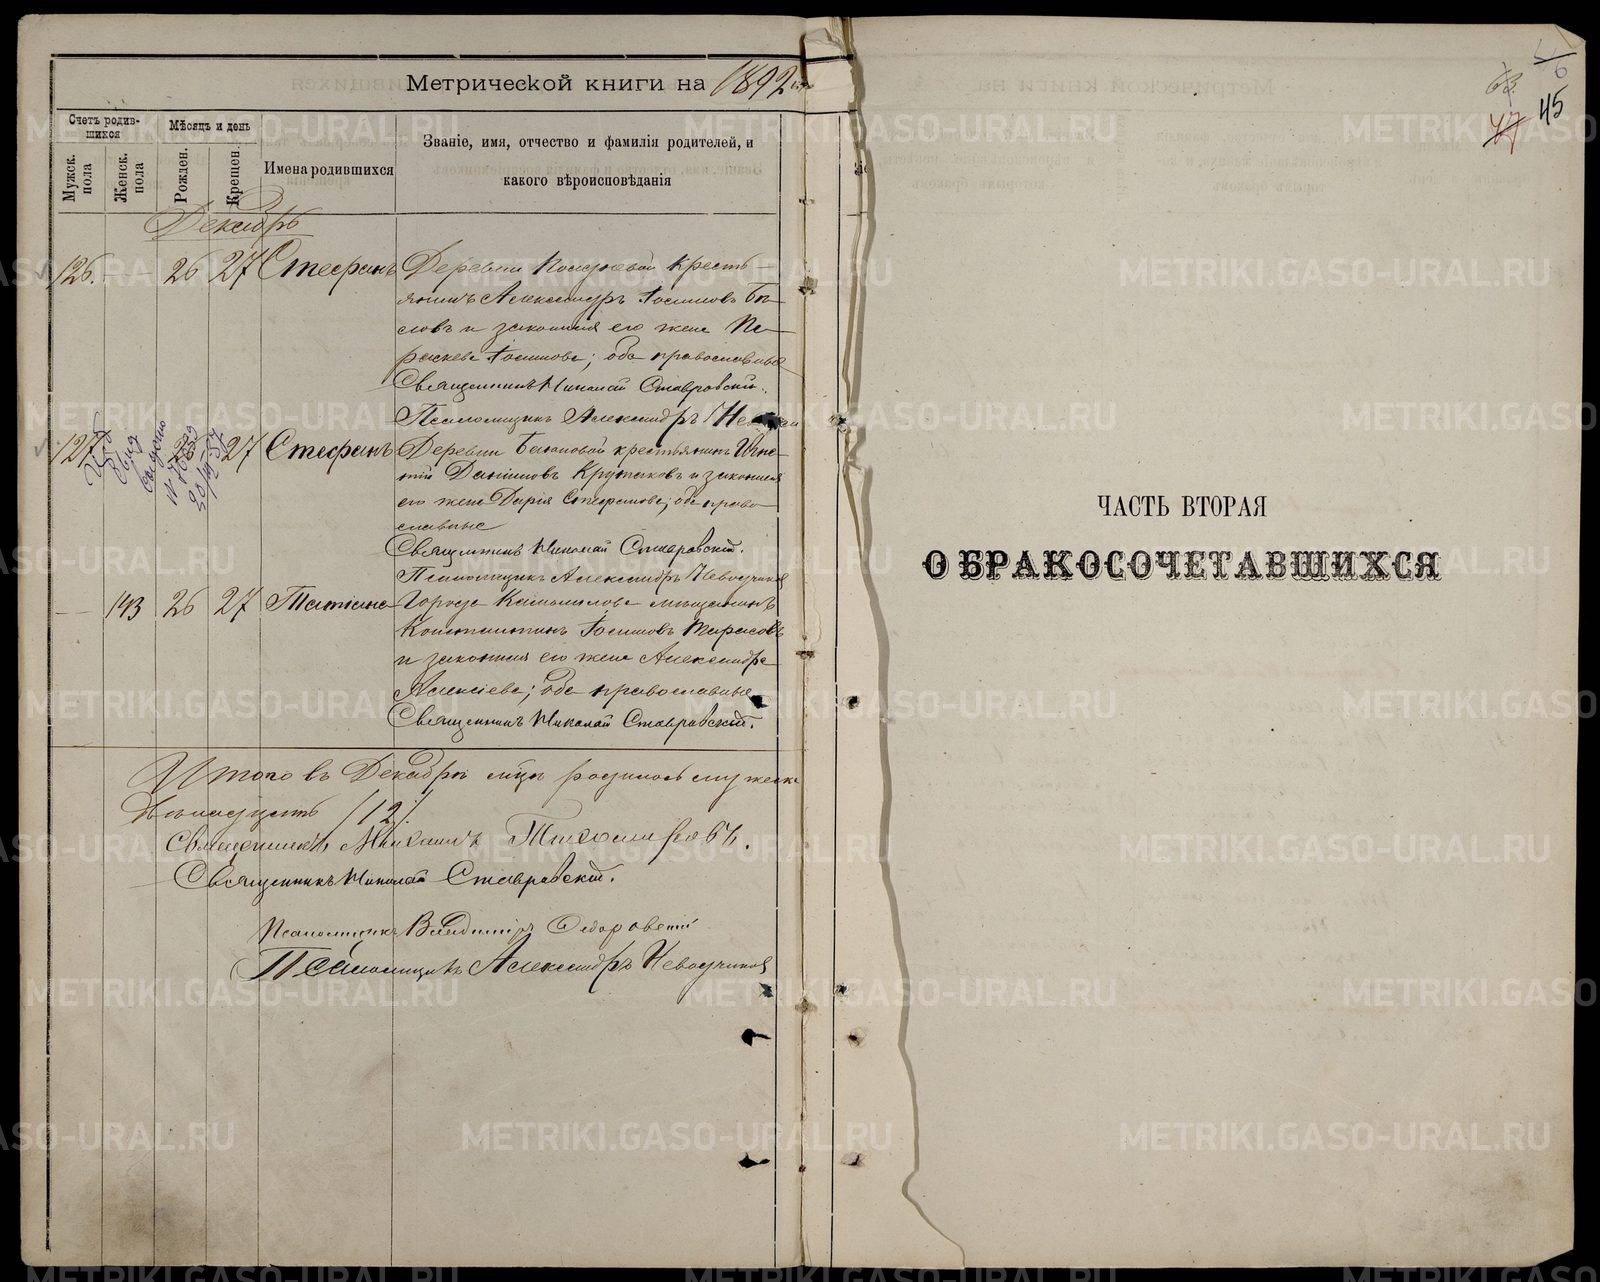 Метрической книги на 1892 годъ
Счетъ родив-
шихся
Мѣсяцъ и день
Мужск.
пола
Женск.
пола
Рожден.
Крещен.
Имена родившихся
Званіе, имя, отчество и фамилія родителей, и
какого вѣроисповѣданія
Декабрь
126. 26 27 Стефанъ
Деревни крестъ-
янинъ Александръ Іосифовъ Бѣ-
ловъ и законная его жена Па-
раскева Іосифова; оба православные
Священникъ Николай Ставровскій.
Псаломщикъ Александръ
127. 27 Стефанъ
Деревни Баяновой крестьянинъ Игна-
тій Даниловъ и законная
его жена Дарія Стефанова; оба право-
славные
Священникъ Николай Ставровскій.
Псаломщикъ Александръ Невьучиновъ
20/III 37
— 143 26 27 Татіана
Города Камышлова мѣщанинъ
Константинъ Іосифовъ Тарасовъ
и законная его жена Александра
Алексіева; оба православные
Священникъ Николай Ставровскій.
Итого въ Декабрѣ мцѣ родилось мужеска
двѣнадцать /12/.
Священникъ Михаилъ Тихомировъ.
Священникъ Николай Ставровскій.
Псаломщикъ Владиміръ Ѳедоровскій
Псаломщикъ Александръ
63.
47
45
6
ЧАСТЬ ВТОРАЯ
О БРАКОСОЧЕТАВШИХСЯ
METRIKI.GASO-URAL.RU